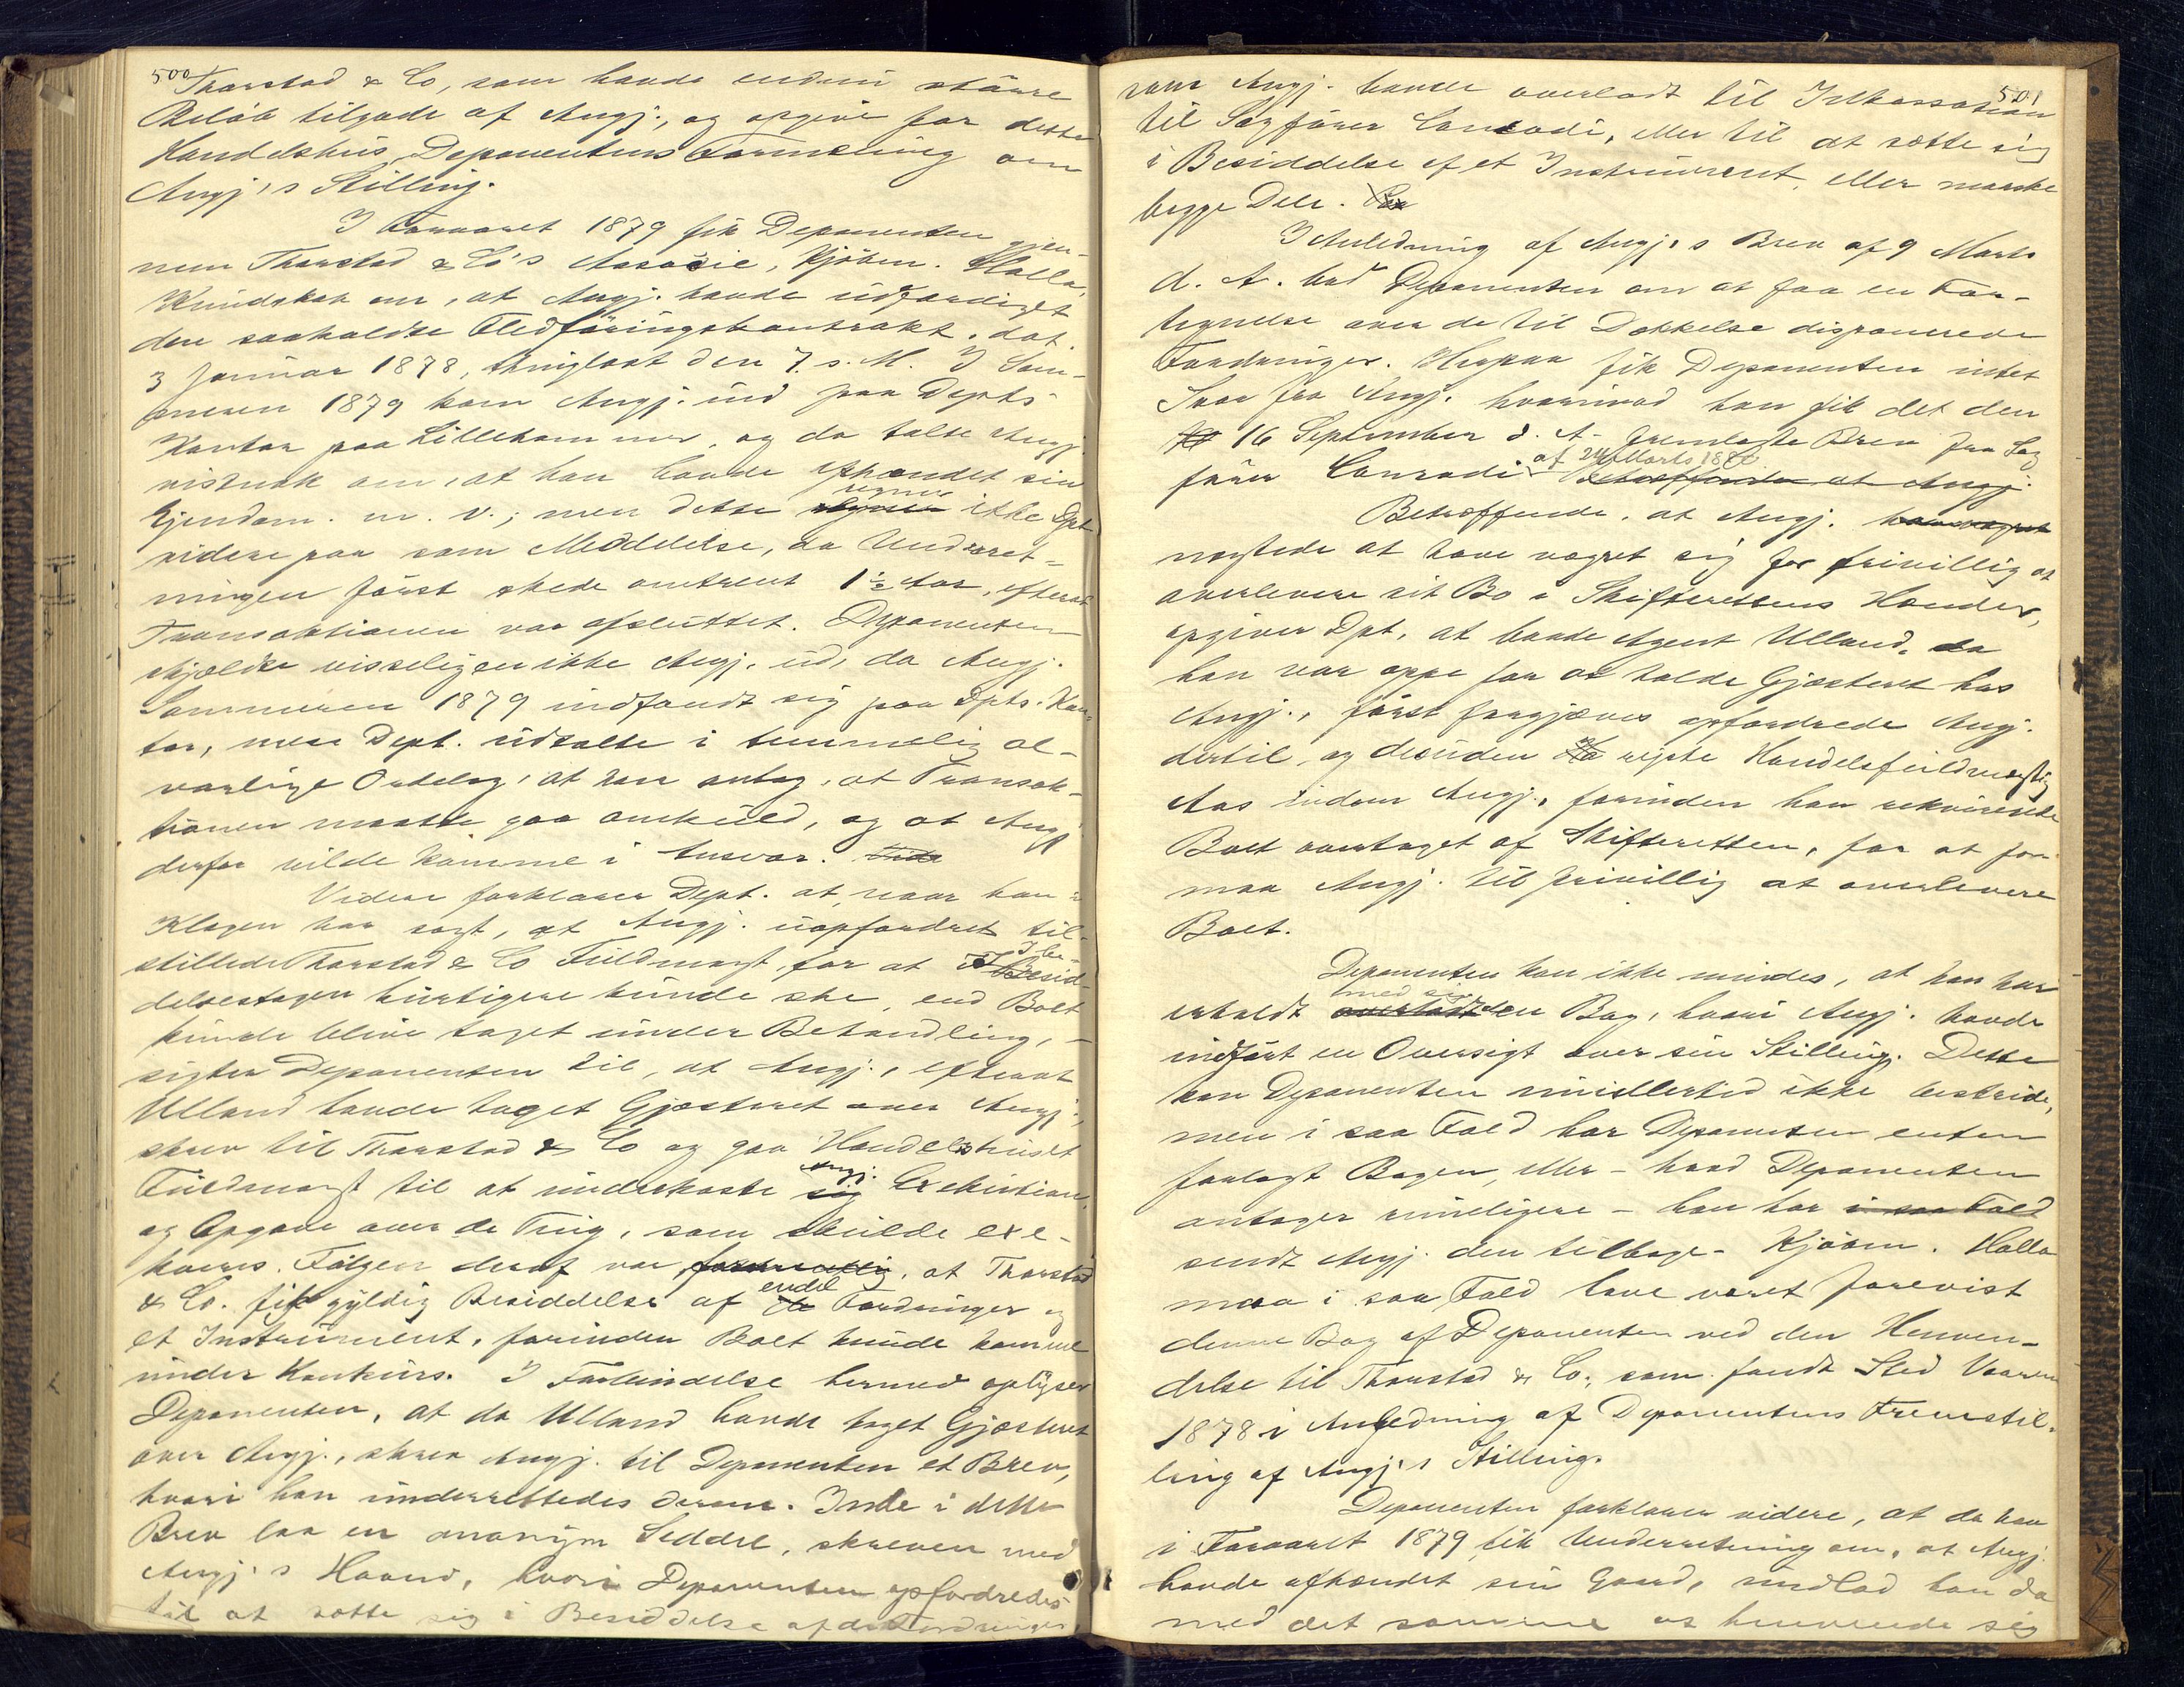 500
Thorstad & Co, som havde endnu större
Beløb tilgode af Angj., og opgive for dette
Handelshus Deponentens Formening om
Angj.s Stilling.
I Foraaret 1879 fik Deponenten gjen-
nem Thorstad & Co's Associe, Kjöbm. Holla,
Kundskab om, at Angj. havde udfærdiget
den saakaldte Fledföringskontrakt, dat.
3 Januar 1878, thinglæst den 7. s. M. I Som-
meren 1879 kom Angj. ind paa Depts
Kontor paa Lillehammer, og da talte Angj.
vistnok om, at han havde afhændet sin
Ejendom m. v.; men dette regner ikke Dpt
videre paa som Meddelelse, da Underret-
ningen först skede omtrent 1½ Aar, efterat
Transaktionen var afsluttet. Deponenten
skjældte visseligen ikke Angj. ud, da Angj.
Sommeren 1879 indfandt sig paa Dpts. Kon-
tor, men Dept. udtalte i temmelig al-
vorlige Ordelag, at han antog, at Transak-
tionen maatte gaa omkuld, og at Angj
derfor vilde komme i Ansvar.
Videre forklarer Dept. at, naar han i
Klagen har sagt, at Angj. uopfordret til-
stillede Thorstad & Co Fuldmagt, for at I be-
siddelsestagen hurtigere kunde ske, end Boet
kunde blive taget under Behandling, –
sigter Deponenten til, at Angj., efterat
Ulland havde taget Gjæsteret over Angj.,
skrev til Thorstad & Co og gav Handelshuset
Fuldmagt til at underkaste sig Angj. Exekution
og Opgave over de Ting, som skulde exe-
kveres. Fölgen deraf var, at Thorstad
& Co. fik gyldig Besiddelse af endel Fordringer og
et Instrument, forinden Boet kunde komme
under Konkurs. I Forbindelse hermed oplyser
Deponenten, at da Ulland havde taget Gjæsteret
over Angj., skrev Angj. til Deponenten et Brev,
hvori han underrettedes derom. Inde i dette
Brev laa en anonym Seddel, skreven med
Angj.s Haand, hvori Deponenten opfordredes
til at sætte sig i Besiddelse af de Fordringer,
501
som Angj. havde overladt til Inkassation
til Sagförer Conradi, eller til at sætte sig
i Besiddelse af et Instrument, eller maaske
begge Dele.
I Anledning af Angj.s Brev af 9 Marts
d. A. bad Deponenten om at faa en For-
tegnelse over de til Dækkelse disponerede
Fordringer. Herpaa fik Deponenten intet
Svar fra Angj. hvorimod han fik det den
16 September d. A. fremlagte Brev fra Sag
förer Conradi af 24 Marts 1880. Betræffende at Angj.
Betræffende, at Angj.
nægtede at have vægret sig for frivillig at
overlevere sit Bo i Skifterettens Hænder,
opgiver Dpt, at baade Agent Ulland, da
han var oppe for at holde Gjæsteret hos
Angj., först forgjæves opfordrede Angj.
dertil, og desuden reiste Handelsfuldmægtig
Aas indom Angj., forinden han rekvirerede
Boet overtaget af Skifteretten, for at for-
maa Angj. til frivillig at overlevere
Boet.
Deponenten kan ikke mindes, at han har
erholdt med sig den Bog, hvori Angj. havde
indfört en Oversigt over sin Stilling. Dette
kan Deponenten imidlertid ikke bestride,
men i saa Fald har Deponenten enten
forlagt Bogen, eller – hvad Deponenten
antager rimeligere – han har i saa Fald
sendt Angj. den tilbage. Kjöbm. Holla
maa i saa Fald have været forevist
denne Bog af Deponenten ved den Henven-
delse til Thorstad & Co., som fandt Sted Vaaren
1878 i Anledning af Deponentens Fremstil-
ling af Angj.s Stilling.
Deponenten forklarer videre, at da han
i Foraaret 1879 fik Underretning om, at Angj.
havde afhændet sin Gaard, undlod han da
med det samme at henvende sig